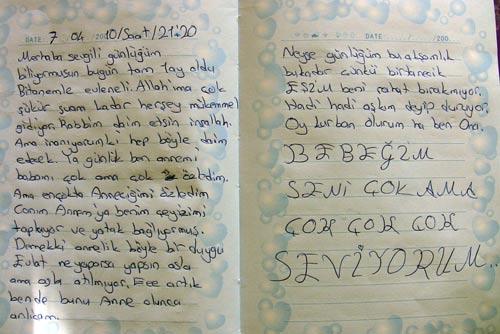 DATE: 7 04 2010/Saat/21:20
Merhaba sevgili günlüğüm
biliyormusun bugün tam 1ay oldu
Bitanemle evleneli. Allah'ıma çok
şükür şuana kadar herşey mükemmel
gidiyor. Rabbim daim etsin inşallah.
Ama inanıyorumki hep böyle daim
edecek. Ya günlük ben annemi
babamı çok ama çok özledim.
Ama ençokta Anneciğimi özledim
Canım Annem'ya benim çeyizimi
topluyor ve yatak bağlıyormuş.
Demekki annelik böyle bir duygu
Evlat ne yaparsa yapsın asla
ama asla atılmıyor. Eee artık
bende bunu Anne olunca
anlıcam.
DATE: / /200
Neyse günlüğüm bu akşamlık
bukadar çünkü birtanecik
EŞİM beni rahat bırakmıyor.
Hadi hadi aşkım deyip duruyor.
Oy kurban olurum ha ben Ona.
BEBEĞİM
SENİ ÇOK AMA
ÇOK ÇOK ÇOK
SEVİYORUM...